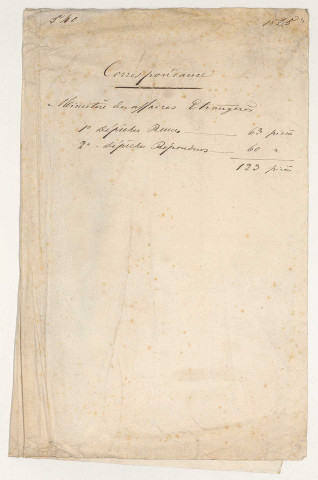 Correspondance
Ministère des affaires Etrangères
1° dépêches Reçues 63 pièces
2° dépêches Répondues 60 "
123 pièces